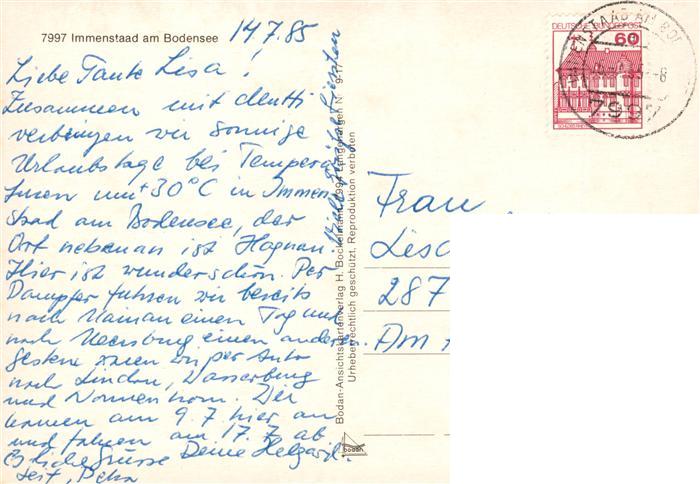 7997 Immenstaad am Bodensee
14.7.85
Liebe Tante Lisa!
Zusammen mit
verbringen wir sonnige
Urlaubstage bei Tempera
turen um +30°C in Immen
staad am Bodensee, der
Ort nebenan ist Hagnau.
Hier ist wunderschön. Per
Dampfer fuhren wir bereits
nach Mainau einen Tag und
nach Meersburg einen anderen.
Gestern waren wir per Auto
nach Lindau, Wasserburg
und Nonnenhorn. Wir
kamen am 9.7 hier an
und fahren am 17.7 ab.
Grüsse Deine Helgard.
Petra
Bodan-Ansichtskartenverlag H. Bockelmann
Urheberrechtlich geschützt, Reproduktion verboten
bodan
DEUTSCHE BUNDESPOST
60
IMMENSTAAD AM BOD
7997
Frau
Lisa
287
Am